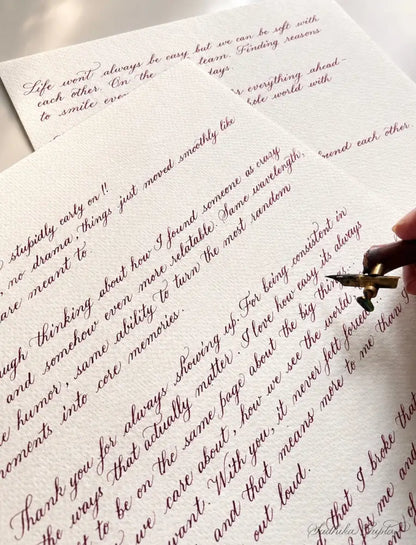 Life won't always be easy but we can be soft with
each other. On the team. Finding reasons
to smile even days.
everything ahead-
whole world with
found each other.
stupidly early on!!
, no drama, things just moved smoothly like
are meant to.
thinking about how I found someone as crazy
and somehow even more relatable. Same wavelength,
humor, same ability to turn the most random
moments into core memories.
Thank you for always showing up. For being consistent in
the ways that actually matter. I love how easy its always
to be on the same page about the big things
we care about, how we see the world
want. With you, it never felt forced
and that means more to me than I
out loud.
that I broke that
for me and
one of
Sudhika Gupta